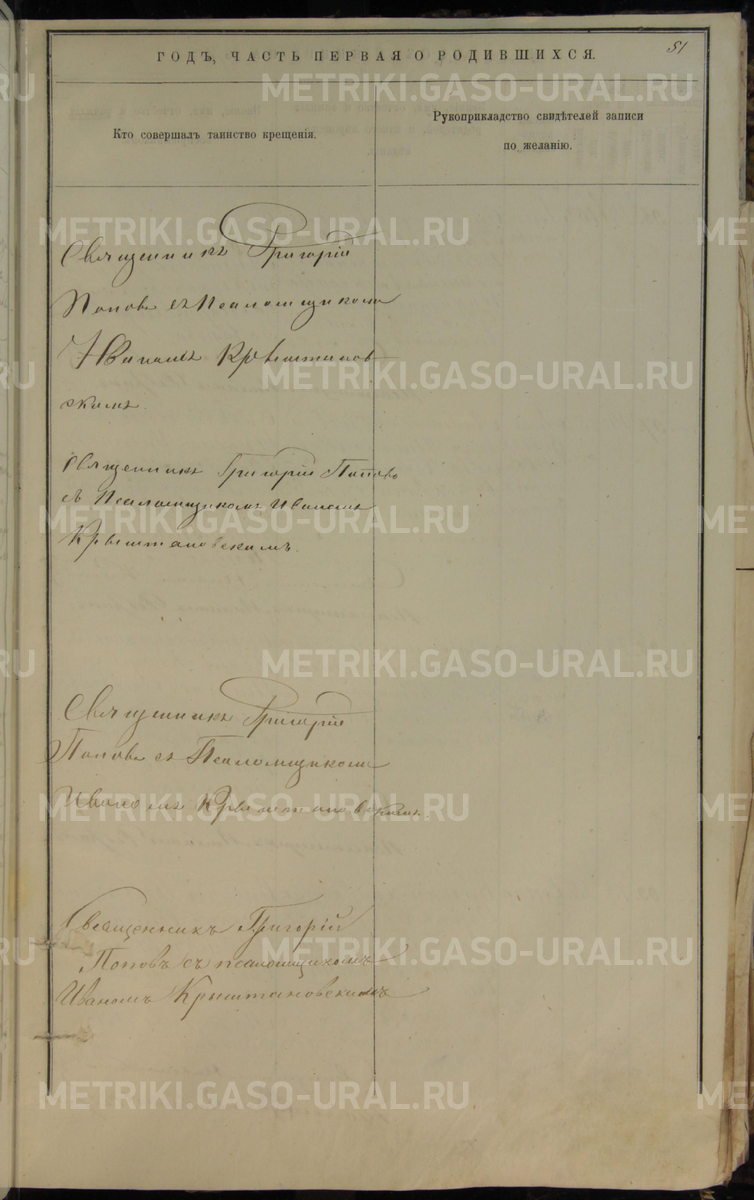 51
ГОДЪ, ЧАСТЬ ПЕРВАЯ О РОДИВШИХСЯ.
Кто совершалъ таинство крещенія.
Рукоприкладство свидѣтелей записи
по желанію.
Священникъ Григорій
Поповъ съ Псаломщикомъ
Иваномъ Крыштанов-
скимъ.
Священникъ Григорій Поповъ
съ Псаломщикомъ Иваномъ
Крыштановскимъ.
Священникъ Григорій
Поповъ съ Псаломщикомъ
Иваномъ Крыштановскимъ.
Священникъ Григорій
Поповъ съ псаломщикомъ
Иваномъ Крыштановскимъ
METRIKI.GASO-URAL.RU